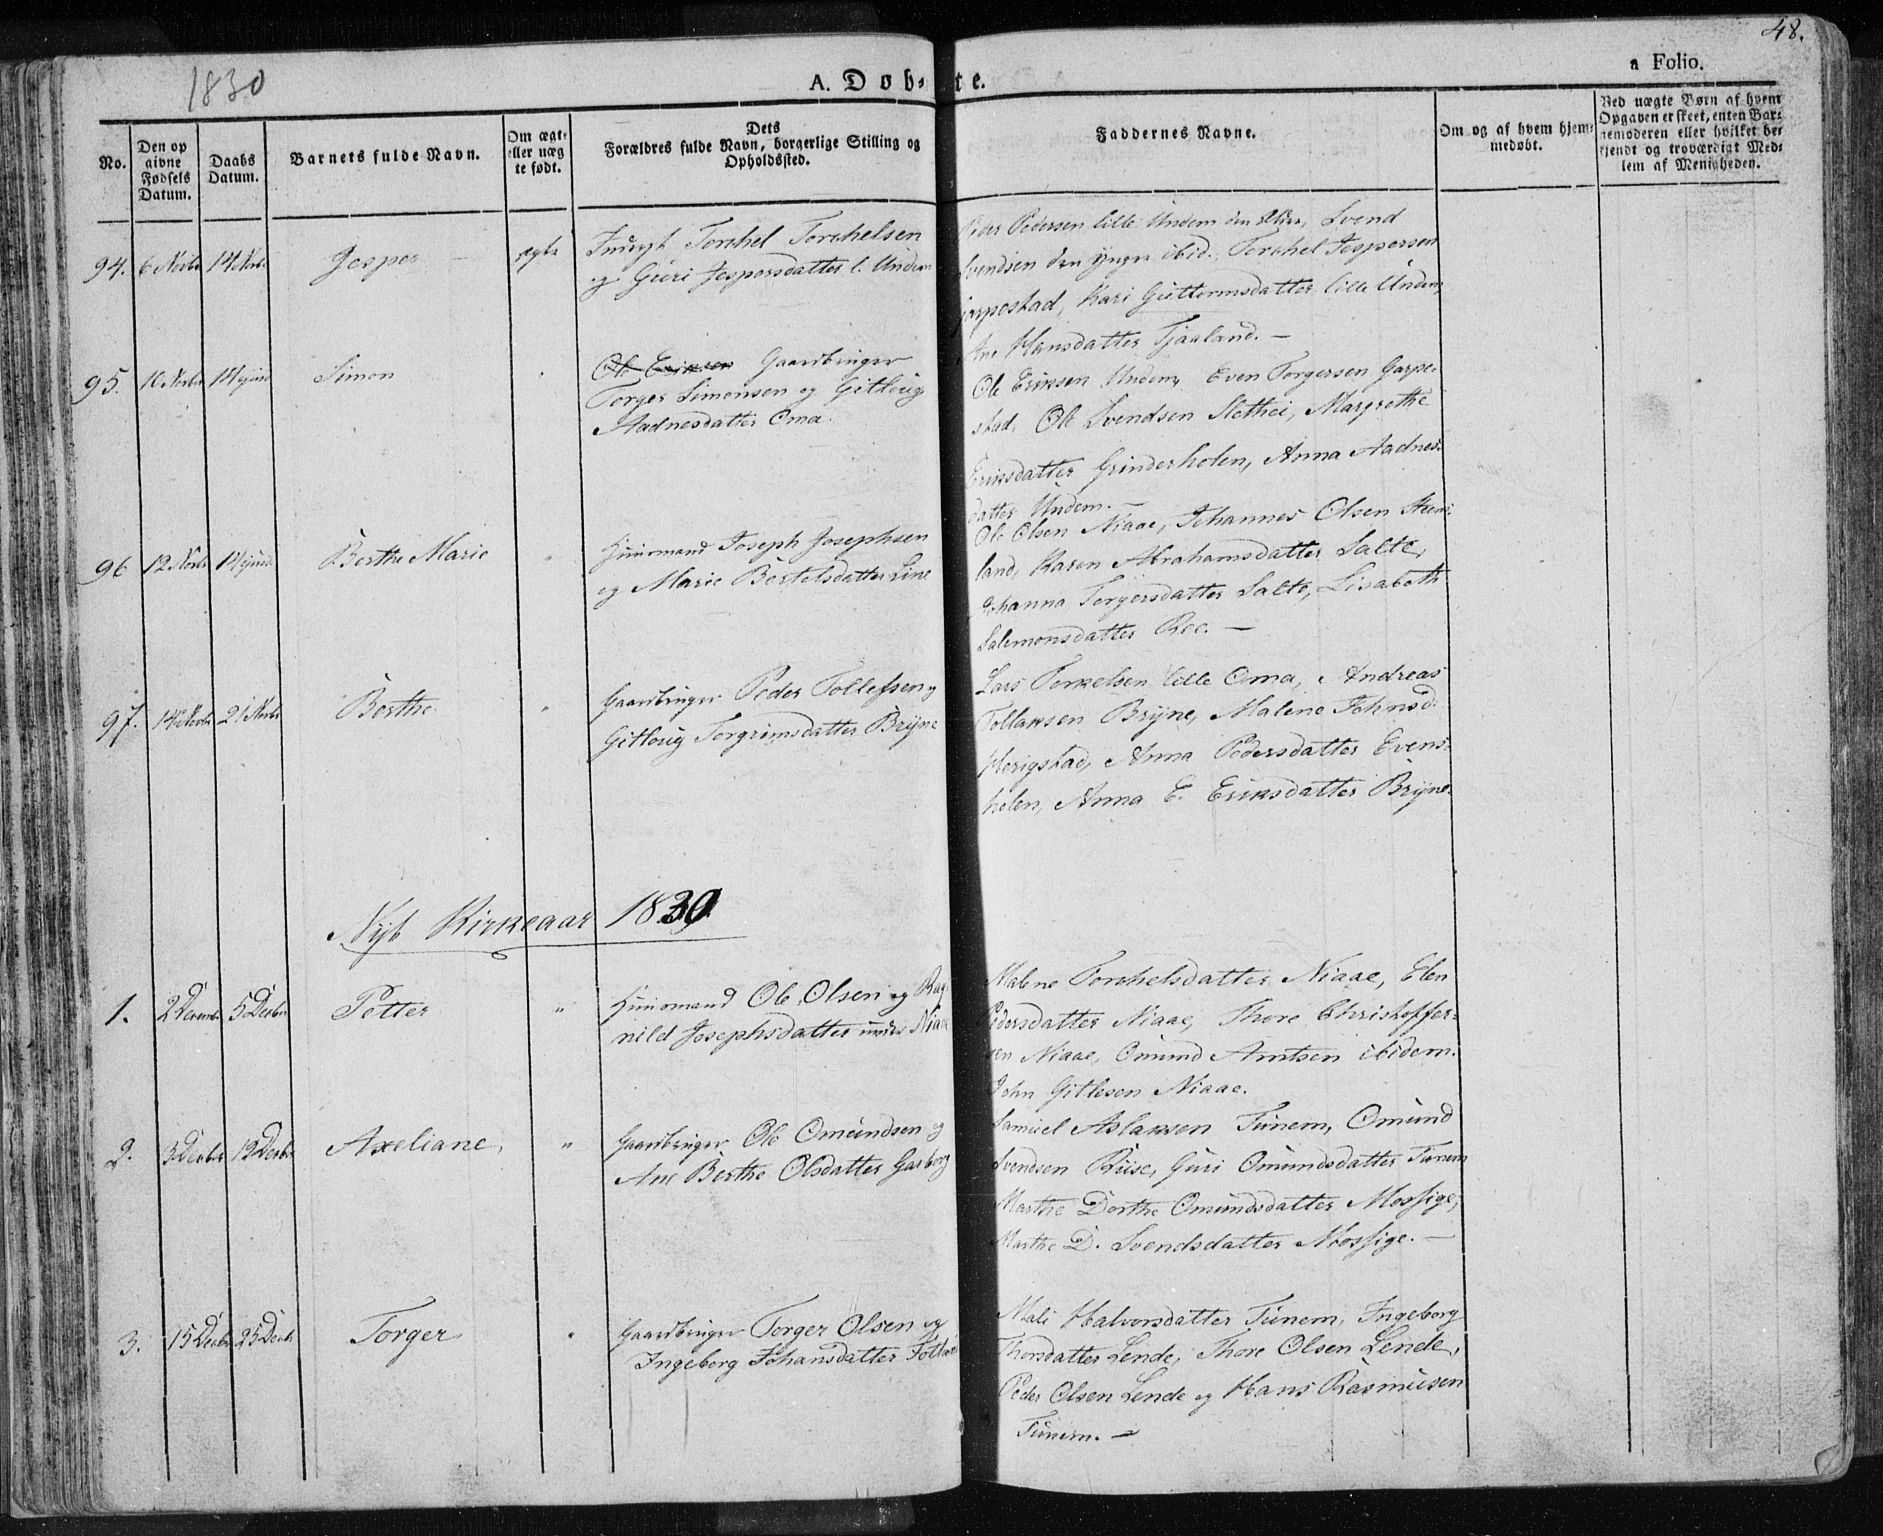 48.
1830
A. Døb-te.
a Folio.
No.
Den op
givne
Fødsels
Datum.
Daabs
Datum.
Barnets fulde Navn.
Om ægte
eller uæg
te født.
Dets
Forældres fulde Navn, borgerlige Stilling og
Opholdssted.
Faddernes Navne.
Om og af hvem hjem-
medøbt.
Ved uægte Børn af hvem
Opgaven er skeet, enten Bar-
nemoderen eller hvilket be-
kjendt og troværdigt Med-
lem af Menigheden.
94. 6 Novbr 14 Novbr Jesper ægte
Torchel Torchelsen
og Guri Jespersdatter l. Undem
Peder Pedersen lille Undem den Svend
Svendsen den yngre ibid., Torchel Jespersen
Garpestad, Kari Guttormsdatter lille Undem,
Ane Hansdatter Tjaaland. —
95. 10 Novbr 14 ejusd Simon
Ole Eriksen Gaardbruger
Torger Simonsen og Gitlaug
Aadnesdatter Oma.
Ole Eriksen Undem, Even Torgersen Garpe-
stad, Ole Svendsen Slethei, Margrethe
Eriksdatter Grinderholen, Anna Aadnes-
datter Undem. —
96 12 Novbr 14 ejusd Berthe Marie "
Huusmand Joseph Josephsen
og Marie Bertelsdatter Line
Ole Olsen Niaae, Johannes Olsen
land, Karen Abrahamsdatter Salte,
Johanna Torgersdatter Salte, Lisabeth
Salemonsdatter Ree. —
97. 14 Novbr 21 Novbr Berthe "
Gaardbruger Peder Tollefsen og
Gitlaug Torgrimsdatter Bryne
Lars Torkelsen lille Oma, Andreas
Tollaksen Bryne, Malene Johnsd.
Herigstad, Anna Pedersdatter Evens-
holen, Anna E. Eriksdatter Bryne.
Nyt Kirkeaar 1830
1. 2 Decembr 5 Decbr Petter "
Huusmand Ole Olsen og Rag-
nild Josephsdatter under Niaae
Malene Torchelsdatter Niaae, Elen
Pedersdatter Niaae, Thore Christoffer-
sen Niaae, Omund Arntsen ibidem.
John Gitlesen Niaae.
2. 3 Decbr 12 Decbr Axeliane, "
Gaardbruger Ole Omundsen og
Ane Berthe Olsdatter Garborg
Samuel Aslaksen Tunem, Omund
Svendsen Riise, Guri Omundsdatter Tunem
Marthe Dorthe Omundsdatter Mossige,
Marthe D. Svendsdatter Mossige. —
3. 15 Decbr 25 Decbr Torger "
Gaardbruger Torger Olsen og
Ingeborg Johansdatter
Mali Halvorsdatter Tunem, Ingeborg
Thorsdatter Lende, Thore Olsen Lende,
Peder Olsen Lende og Hans Rasmusen
Tunem. —